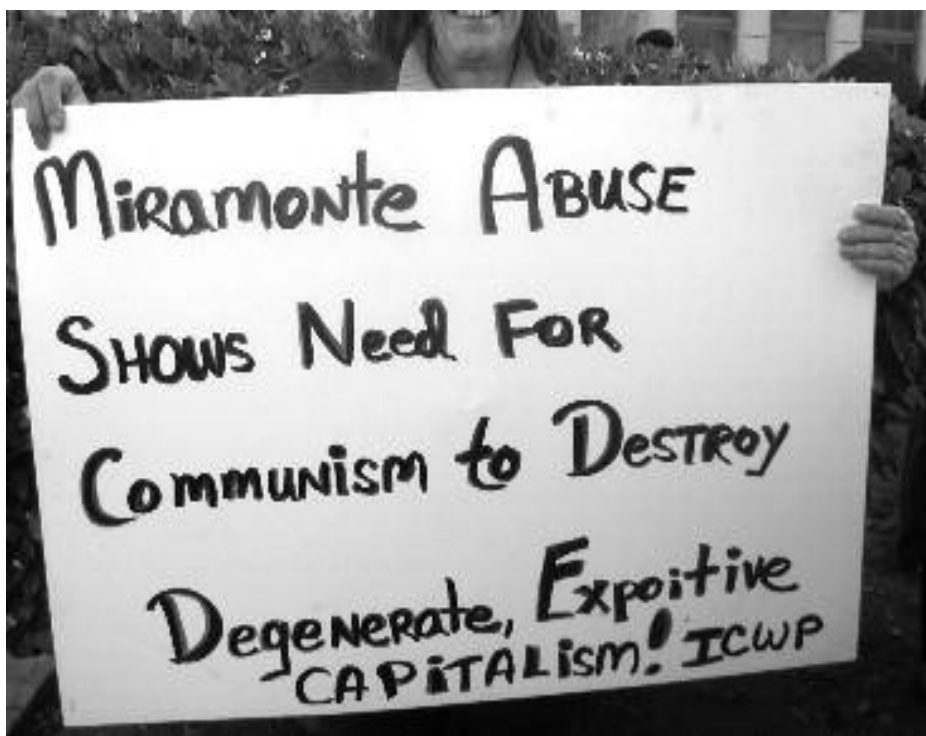 Miramonte Abuse
Shows Need For
Communism to Destroy
Degenerate, Expoitive
CAPiTALism! ICWP